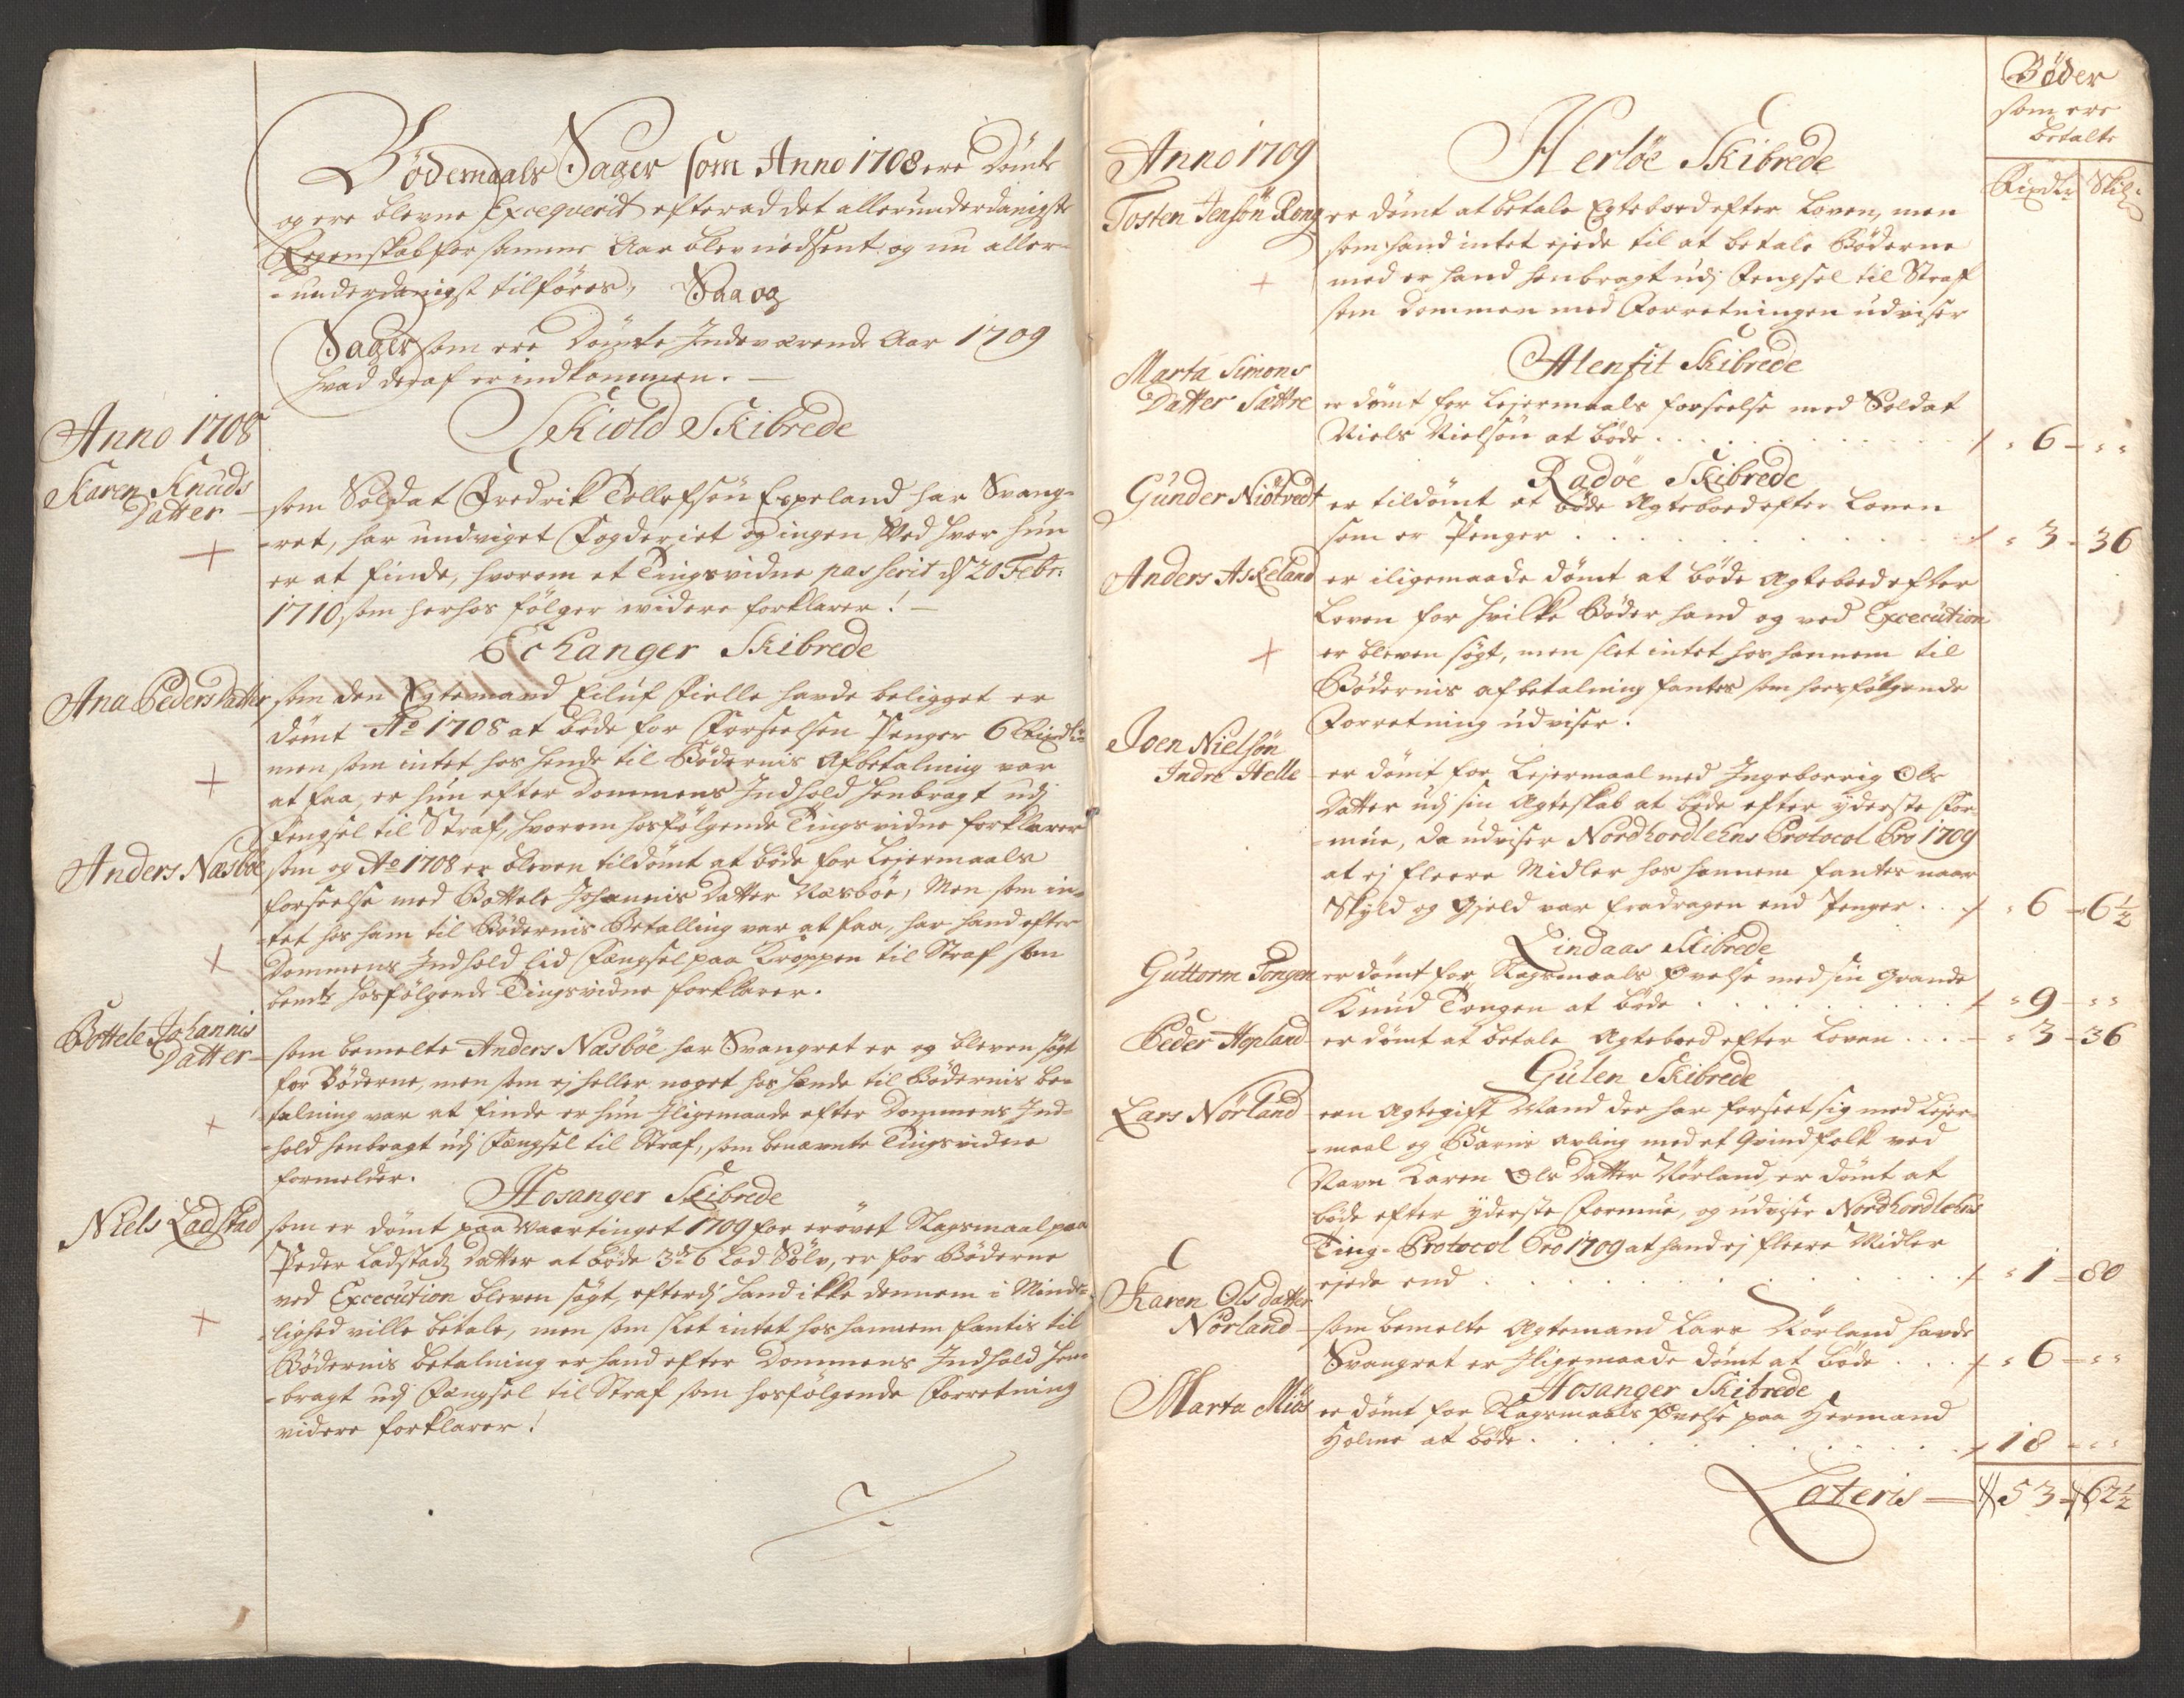 Bødemaals Sager som Anno 1708 ere Dømte
og ere blevne Exceqverit efterad det allerunderdanigste
Regenskab for samme Aar blev nedsent og nu aller-
-underdanigst tilføres, Saa og
Sager som ere Dømte Indeværende Aar 1709
hvad deraf er indkommen. —
Anno 1708
Skiold Skibrede
Karen Knuds
Datter —
som Soldat Fredrik Tollefsøn Eppeland har Svang-
-ret, har undviget Fogderiet og ingen Ved hvor hun
er at finde, hvorom et Tingsvidne passerit d 20 Febr:
1710, som herhos følger videre forklarer! —
Echanger Skibrede
Ana Peders Datter
som den Egtemand Eiluf Fielle havde beligget er
dømt Ao 1708 at bøde for Forseelsen Penger 6 Rixdlr
men som intet hos hende til Bødernis Afbetalning var
at faa, er hun efter Dommens Indhold henbragt udj
Fengsel til Straf, hvorom hosfølgende Tingsvidne forklarer
Anders Næsbøe
som og Ao 1708 er bleven tildømt at bøde for Lejermaals
forseelse med Bottele Johannis Datter Næsbøe, Men som in-
-tet hos ham til Bødernis Betalling var at faa, har hand efter
Dommens Indhold lid Fængsel paa Kroppen til Straf som
bemte hosfølgende Tingsvidne forklarer.
Bottele Johannis
Datter —
som bemelte Anders Næsbøe har Svangret er og bleven søgt
for Bøderne, men som ej heller noget hos hende til Bødernis be-
-talning var at finde er hun Iligemaade efter Dommens Ind-
-hold henbragt udj Fængsel til Straf, som benævnte Tingsvidne
formelder.
Hosanger Skibrede
Niels Ladstad
som er dømt paa Vaartinget 1709 for erøvet Slagsmaal paa
Peder Ladstads Datter at bøde 3de 6 Lod Sølv, er for Bøderne
ved Excecution bleven søgt, efterdj hand ikke dennem i Minde-
-lighed ville betale, men som slet intet hos hannem fantis til
Bødernis betalning er hand efter Dommens Indhold hen-
-bragt udj Fængsel til Straf som hosfølgende Forretning
videre forklarer!
Bøder
som ere
betalte
Rixdlr Skil:
Anno 1709
Herløe Skibrede
Tosten Jensøn Rong
er dømt at betale Egteboed efter Loven, men
som hand intet ejede til at betale Bøderne
med er hand henbragt udj Fengsel til Straf
som Dommen med Forretningen udviser
Alenfit Skibrede
Marta Simons
Datter Sættre
er dømt for Lejermaals forseelse med Soldat
Niels Nielsøn at bøde . . . 6 - "
Radøe Skibrede
Gunder Niøtvedt
er tildømt at bøde Ægteboed efter Loven
som er Penger . . . 3 - 36
Anders Askeland
er iligemaade dømt at bøde Ægteboed efter
Loven for hvilke Bøder hand og ved Excecution
er bleven søgt, men slet intet hos hannem til
Bødernis afbetalning fantes som hosfølgende
Forretning udviser.
Joen Nielsøn
Indre Helle
er dømt for Lejermaal med Ingeborrig Ols
Datter udj sin Ægteskab at bøde efter yderste For-
-mue, da udviser Nordhordlehns Protocol Pro 1709
at ej fleere Midler hos hannem fantes naar
Skyld og Gjeld var fradragen end Penger . . 6 - 6½
Lindaas Skibrede
Guttorm Tongen
er dømt for Slagsmaals Øvelse med sin Grande
Knud Tongen at bøde . . . 9 - "
Peder Hopland
er dømt at betale Ægteboed efter Loven . . . 3 - 36
Gulen Skibrede
Lars Nørland
een Ægtegift Mand der har forseet sig med Lejer-
-maal og Barns avling med et Qvindfolk ved
Navn Karen Ols Datter Nørland er dømt at
bøde efter yderste Formue, og udviser Nordhordlehns
Ting-Protocol Pro 1709 at hand ej fleere Midler
ejede end . . . 1 - 80
Karen Olsdatter
Nørland —
som bemelte Ægtemand Lars Nørland havde
Svangret er Iligemaade dømt at bøde . . . 6 - "
Hosanger Skibrede
Marta Miøs
er dømt for Slagsmaals Øvelse paa Hermand
Holme at bøde . . . 18 - "
Lateris — 53 - 62½